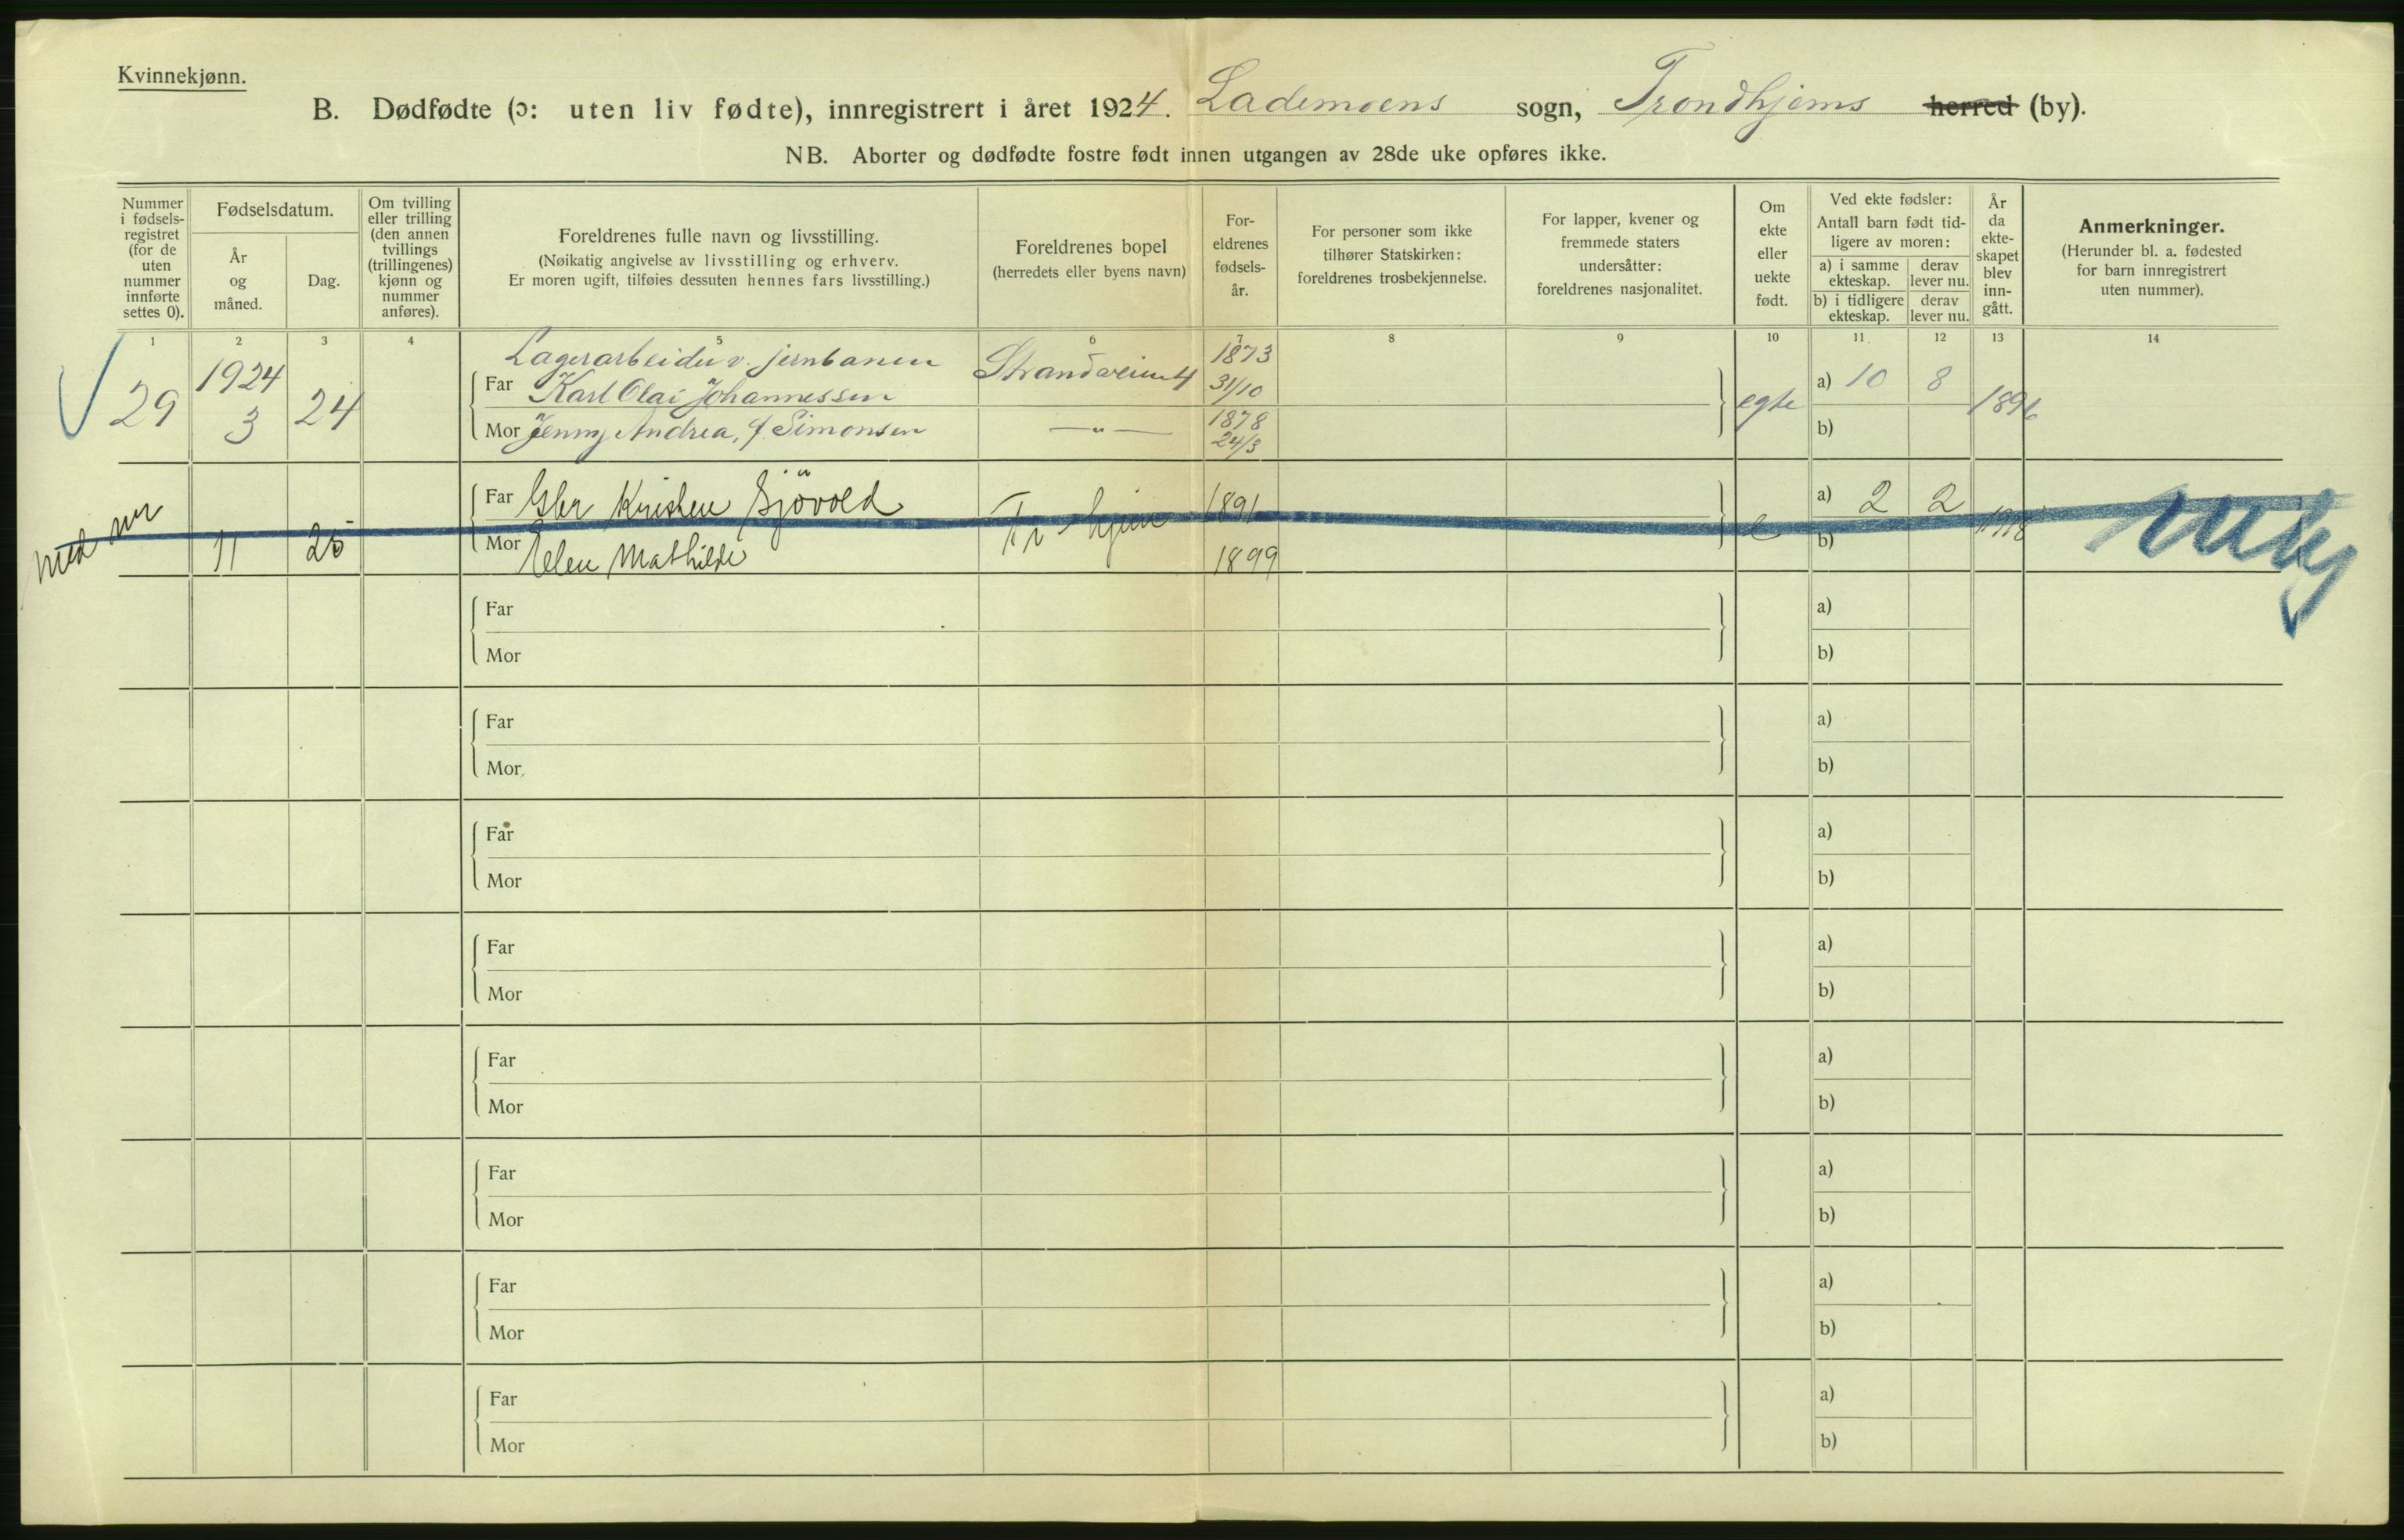 Kvinnekjønn.
B. Dødfødte (ɔ: uten liv fødte), innregistrert i året 1924. Lademoens sogn, Trondhjems herred (by).
NB. Aborter og dødfødte fostre født innen utgangen av 28de uke opføres ikke.
Nummer
i fødsels-
registret
(for de
uten
nummer
innførte
settes 0).
Fødselsdatum.
År
og
måned.
Dag.
Om tvilling
eller trilling
(den annen
tvillings
(trillingenes)
kjønn og
nummer
anføres).
Foreldrenes fulle navn og livsstilling.
(Nøikatig angivelse av livsstilling og erhverv.
Er moren ugift, tilføies dessuten hennes fars livsstilling.)
Foreldrenes bopel
(herredets eller byens navn)
For-
eldrenes
fødsels-
år.
For personer som ikke
tilhører Statskirken:
foreldrenes trosbekjennelse.
For lapper, kvener og
fremmede staters
undersåtter:
foreldrenes nasjonalitet.
Om
ekte
eller
uekte
født.
Ved ekte fødsler:
Antall barn født tid-
ligere av moren:
a) i samme
ekteskap.
derav
lever nu.
b) i tidligere
ekteskap.
derav
lever nu.
År
da
ekte-
skapet
blev
inn-
gått.
Anmerkninger.
(Herunder bl. a. fødested
for barn innregistrert
uten nummer).
1 2 3 4 5 6 7 8 9 10 11 12 13 14
29
1924
3
24
Lagerarbeider v. jernbanen
Far Karl Olai Johannessen
Mor Jenny Andrea, f. Simonsen
Strandveien 4
— " —
1873
31/10
1878
24/3
egte
a) 10 8
b)
1896
11 25
Far Kristen Sjövold
Mor Elen Mathilde
1891
1899
e
a) 2 2
b)
1918
Far
Mor
a)
b)
Far
Mor
a)
b)
Far
Mor
a)
b)
Far
Mor
a)
b)
Far
Mor
a)
b)
Far
Mor
a)
b)
Far
Mor
a)
b)
Far
Mor
a)
b)